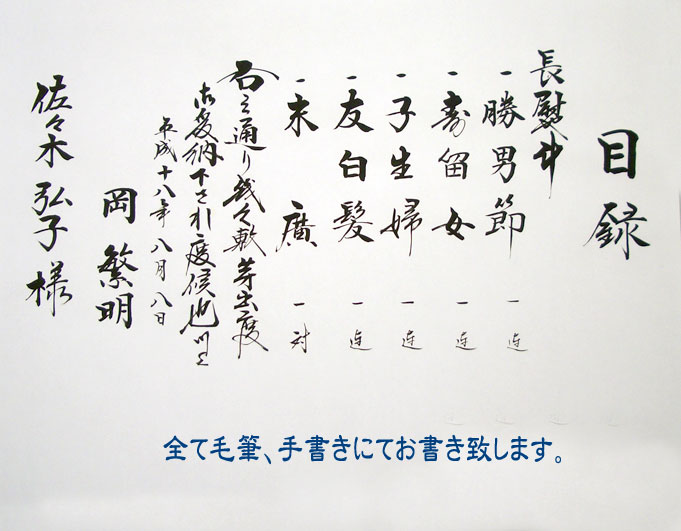 目録
長熨斗
一 勝男節 一連
一 寿留女 一連
一 子生婦 一連
一 友白髪 一連
一 末廣 一対
右之通り幾久敷芽出度
御受納下され度候也
平成十八年八月八日
岡 繁明
佐々木 弘子 様
全て毛筆、手書きにてお書き致します。